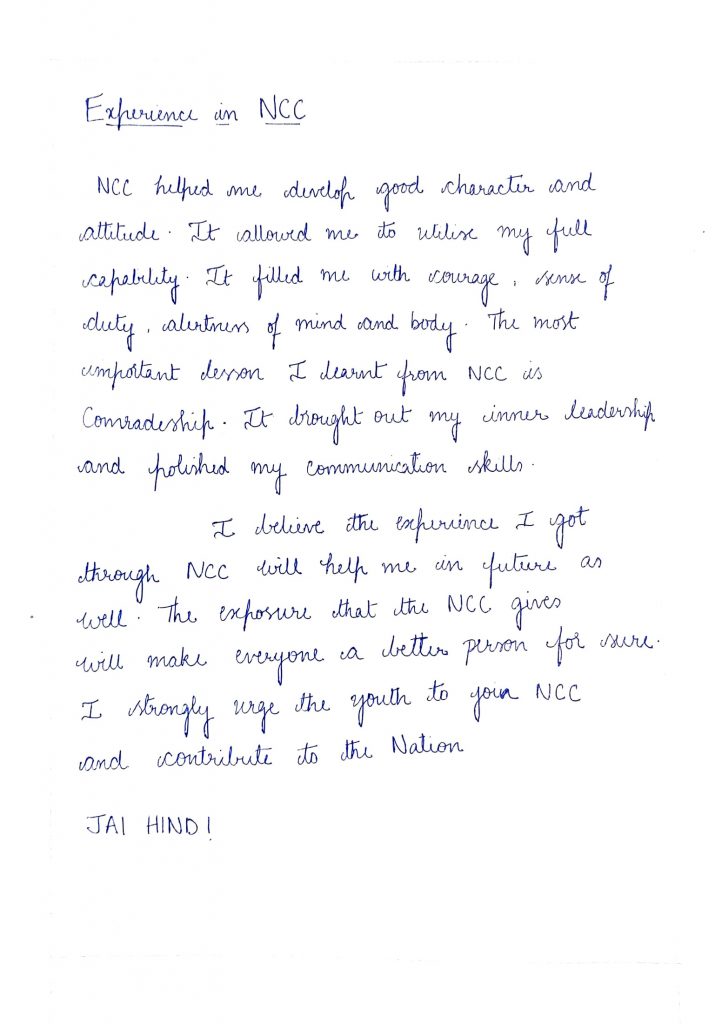 Experience in NCC
NCC helped me develop good character and
attitude. It allowed me to utilise my full
capability. It filled me with courage, sense of
duty, alertness of mind and body. The most
important lesson I learnt from NCC is
Comradeship. It brought out my inner leadership
and polished my communication skills.
I believe the experience I got
through NCC will help me in future as
well. The exposure that the NCC gives
will make everyone a better person for sure.
I strongly urge the youth to join NCC
and contribute to the Nation
JAI HIND!